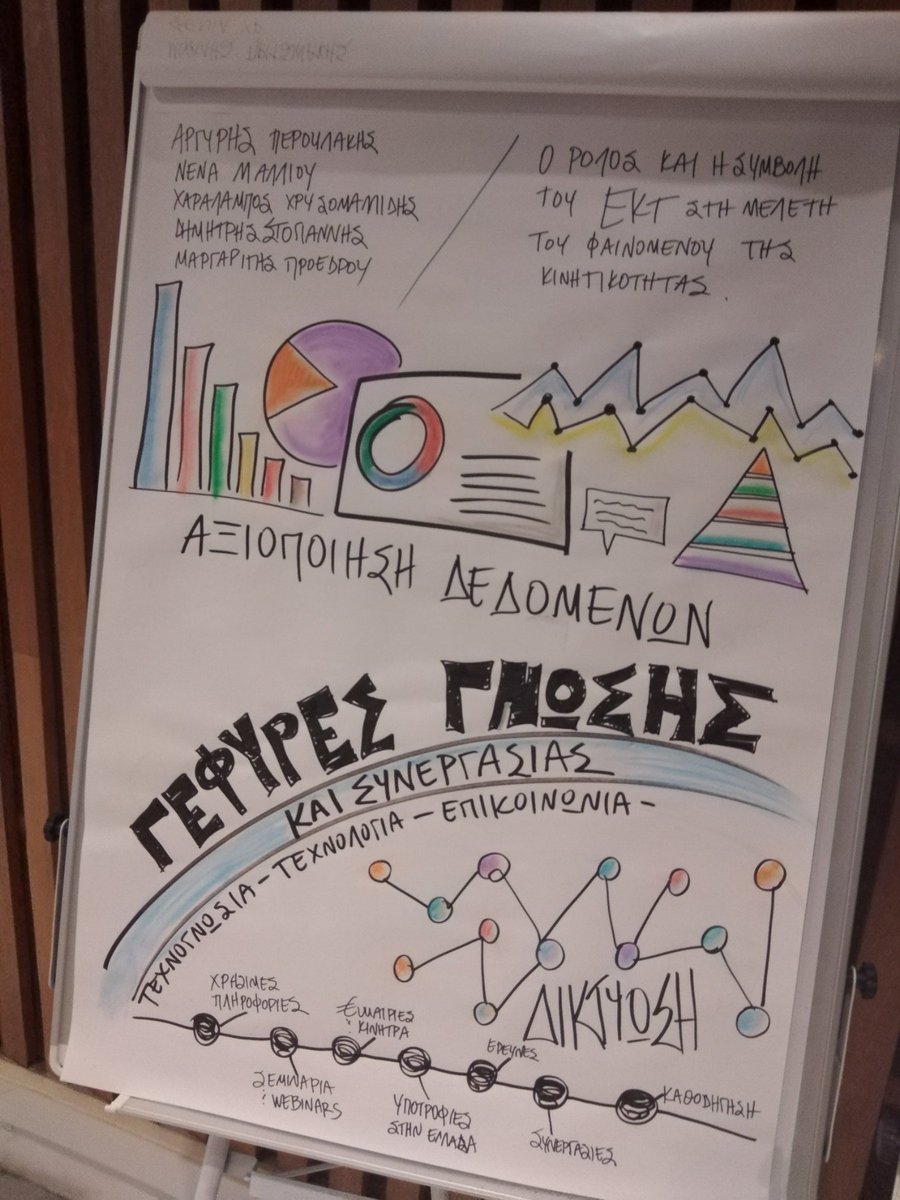 ΑΡΓΥΡΗΣ ΠΕΡΟΥΛΑΚΗΣ
ΝΕΝΑ ΜΑΛΛΙΟΥ
ΧΑΡΑΛΑΜΠΟΣ ΧΡΥΣΟΜΑΛΛΙΔΗΣ
ΔΗΜΗΤΡΗΣ ΣΤΟΓΙΑΝΝΗΣ
ΜΑΡΓΑΡΙΤΗΣ ΠΡΟΕΔΡΟΥ
Ο ΡΟΛΟΣ ΚΑΙ Η ΣΥΜΒΟΛΗ
ΤΟΥ ΕΚΤ ΣΤΗ ΜΕΛΕΤΗ
ΤΟΥ ΦΑΙΝΟΜΕΝΟΥ ΤΗΣ
ΚΙΝΗΤΙΚΟΤΗΤΑΣ.
ΑΞΙΟΠΟΙΗΣΗ ΔΕΔΟΜΕΝΩΝ
ΓΕΦΥΡΕΣ ΓΝΩΣΗΣ
ΚΑΙ ΣΥΝΕΡΓΑΣΙΑΣ
ΤΕΧΝΟΓΝΩΣΙΑ - ΤΕΧΝΟΛΟΓΙΑ - ΕΠΙΚΟΙΝΩΝΙΑ -
ΔΙΚΤΥΩΣΗ
ΧΡΗΣΙΜΕΣ
ΠΛΗΡΟΦΟΡΙΕΣ
ΣΕΜΙΝΑΡΙΑ
: WEBINARS
ΕΥΚΑΙΡΙΕΣ
: ΚΙΝΗΤΡΑ
ΥΠΟΤΡΟΦΙΕΣ
ΣΤΗΝ ΕΛΛΑΔΑ
ΕΡΕΥΝΕΣ
ΣΥΝΕΡΓΑΣΙΕΣ
ΚΑΘΟΔΗΓΗΣΗ